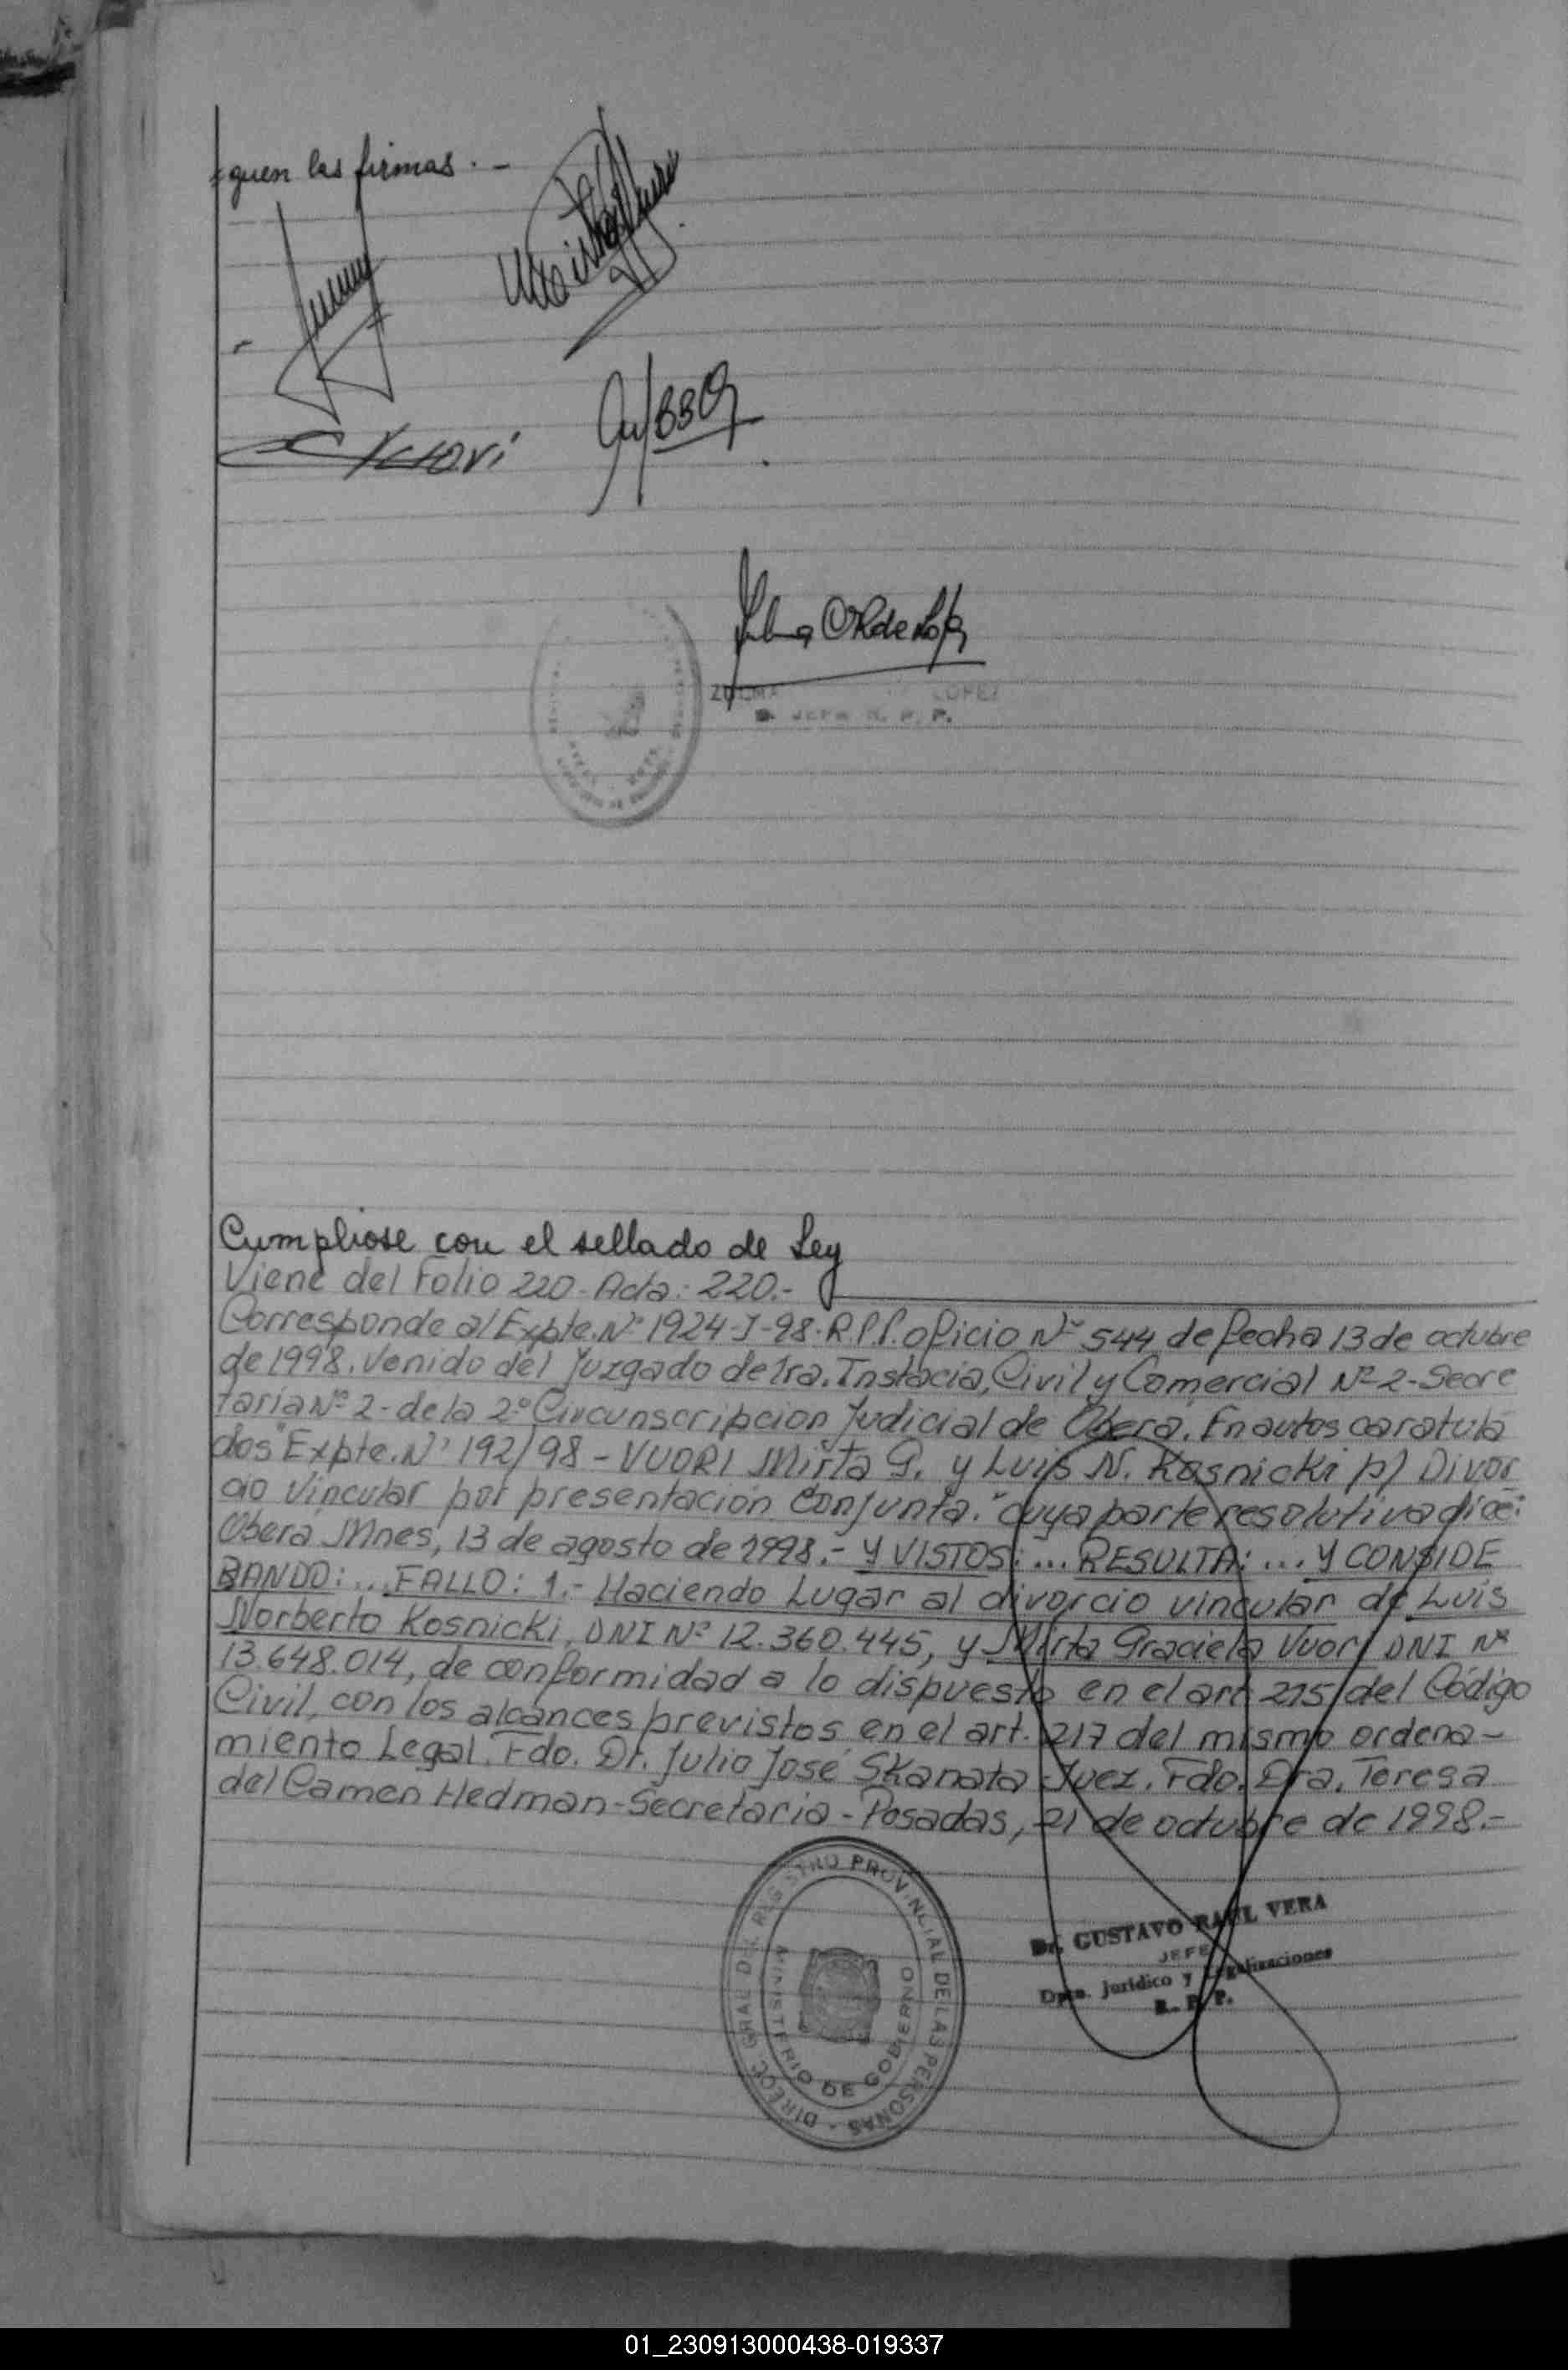 guen las firmas.-
Vuori
LOPEZ
JEFA R. P. P.
Cumpliose con el sellado de Ley
Viene del Folio 220-Acta: 220.-
Corresponde al Expte. Nº 1924-J-98-R.P.P. oficio Nº 544 de fecha 13 de octubre
de 1998. Venido del Juzgado de 1ra. Instacia, Civil y Comercial Nº 2-Secre
taria Nº 2-de la 2º Circunscripcion Judicial de Oberá. En autos caratula
dos "Expte. Nº 192/98 - VUORI Mirta G. y Luis N. Kosnicki p/ Divor
cio Vincular por presentación Conjunta." cuya parte resolutiva dice:
Oberá Mnes, 13 de agosto de 1998.- Y VISTOS: ... RESULTA: ... Y CONSIDE
RANDO: ... FALLO: 1.- Haciendo Lugar al divorcio vincular de Luis
Norberto Kosnicki, DNI Nº 12.360.445, y Mirta Graciela Vuori DNI Nº
13.648.014, de conformidad a lo dispuesto en el art 215 del Código
Civil, con los alcances previstos en el art. 217 del mismo ordena-
miento Legal. Fdo. Dr. Julio José Skanata-Juez. Fdo. Dra. Teresa
del Camen Hedman-Secretaria-Posadas, 21 de octubre de 1998.-
DIRECC. GRAL DEL REGISTRO PROVINCIAL DE LAS PERSONAS -
MINISTERIO DE GOBIERNO
Dr. GUSTAVO RAUL VERA
JEFE
Dpto. Jurídico y Legalizaciones
R. P. P.
01_230913000438-019337